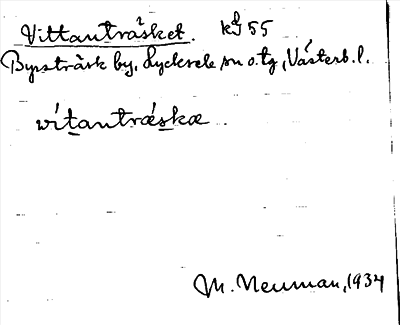 Vittanträsket. kg 55
Byssträsk by, Lycksele sn o. tg, Västerb. l.
vítantrǽskæ.
M. Neuman, 1934